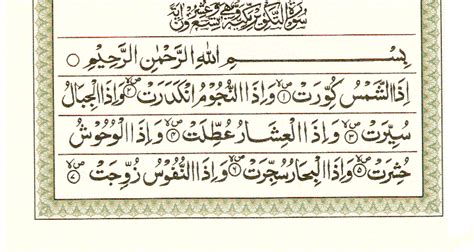 سُورَةُ التَّكْوِيرِ مَكِّيَّةٌ وَّهِيَ تِسْعٌ وَّعِشْرُونَ اٰيَةً
بِسْمِ اللّٰهِ الرَّحْمٰنِ الرَّحِيْمِ ○
اِذَا الشَّمْسُ كُوِّرَتْ ۝۱ وَاِذَا النُّجُوْمُ انْكَدَرَتْ ۝۲ وَاِذَا الْجِبَالُ
سُيِّرَتْ ۝۳ وَاِذَا الْعِشَارُ عُطِّلَتْ ۝۴ وَاِذَا الْوُحُوْشُ
حُشِرَتْ ۝۵ وَاِذَا الْبِحَارُ سُجِّرَتْ ۝۶ وَاِذَا النُّفُوْسُ زُوِّجَتْ ۝۷